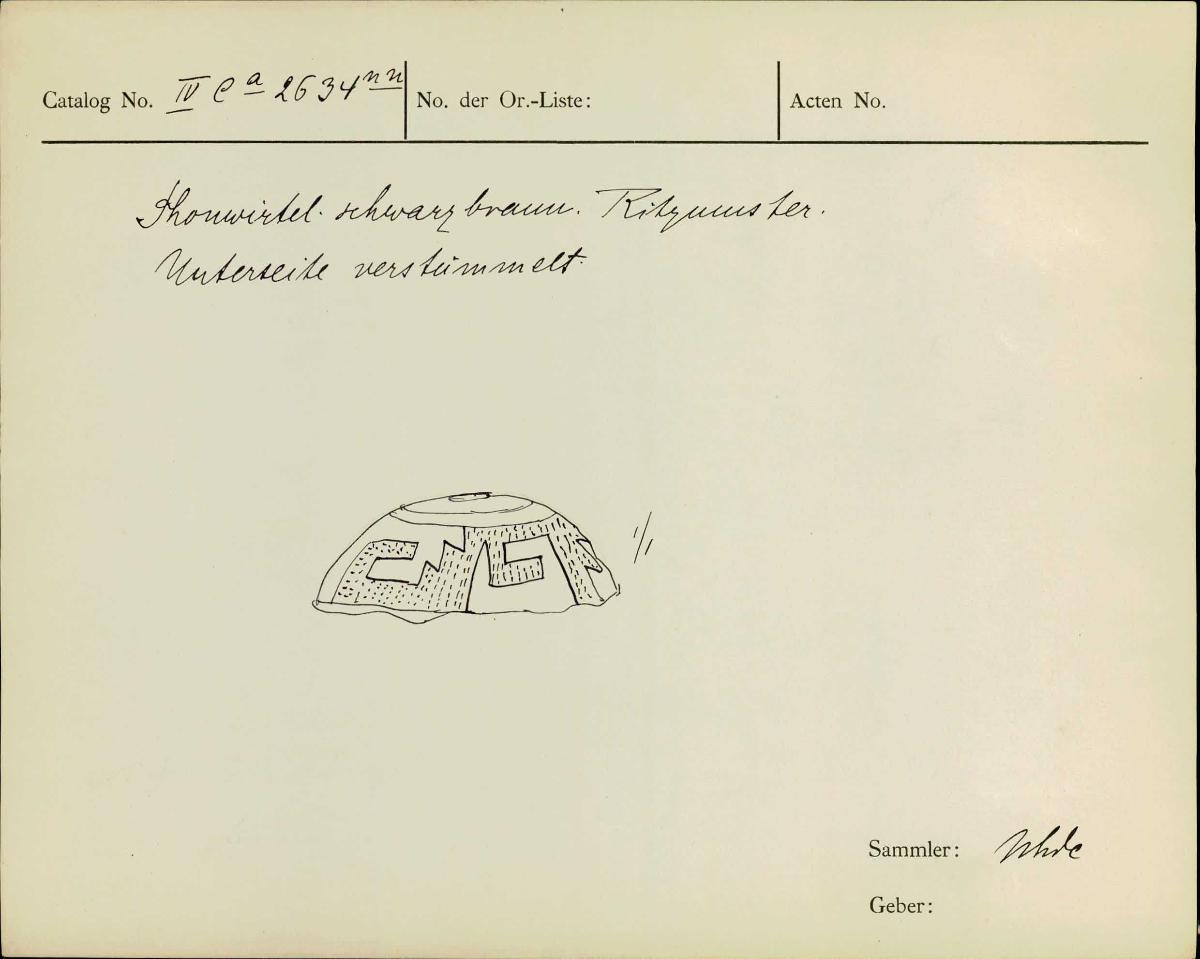 Catalog No. IV Ca 2634nn No. der Or.-Liste: Acten No.
Thonwirtel. schwarzbraun. Ritzmuster.
Unterseite verstümmelt.
1/1
Sammler: Uhde
Geber: